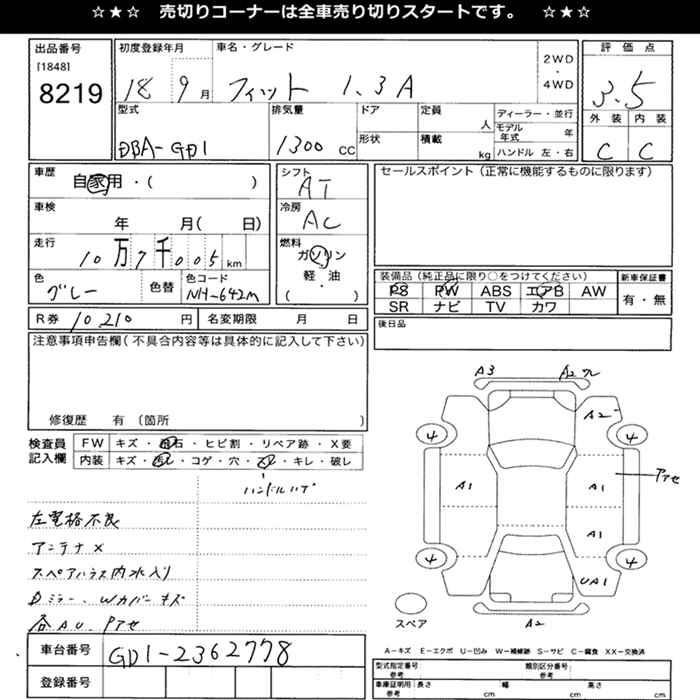 ☆★☆ 売切りコーナーは全車売り切りスタートです。 ☆★☆
出品番号
[1848]
8219
初度登録年月
18 9月
車名・グレード
フィット 1.3A
2WD
・
4WD
評価点
3.5
外装 内装
C C
型式
DBA-GD1
排気量
1300 CC
ドア
形状
定員
人
積載
kg
ディーラー・並行
モデル年式 年
ハンドル 左・右
車歴
自家用・( )
車検
年 月( 日)
走行
10万7千005km
色
グレー
色替
色コード
NH-642M
シフト
AT
冷房
AC
燃料
ガソリン
軽・油
( )
セールスポイント(正常に機能するものに限ります)
装備品(純正品に限り○をつけてください)
PS PW ABS エアB AW
SR ナビ TV カワ
新車保証書
有・無
R券 10210円
名変期限 月 日
後日品
注意事項申告欄(不具合内容等は具体的に記入して下さい)
修復歴 有(箇所 )
検査員
記入欄
FW キズ・飛石・ヒビ割・リペア跡・X要
内装 キズ・汚レ・コゲ・穴・スレ・キレ・破レ
ハンドルハゲ
左電格不良
アンテナ×
スペアハウス内水入り
Dミラー、Wカバーキズ
各AU、Pアセ
A3
A2
A2
4
4
A1
A1
Pアセ
A1
4
4
UA1
スペア
A2
A−キズ E−エクボ U−凹み W−補修跡 S−サビ C−腐食 XX−交換済
車台番号
GD1-2362778
登録番号
型式指定番号
参考
類別区分番号
参考
車庫証明用
参考
長さ cm
幅 cm
高さ cm